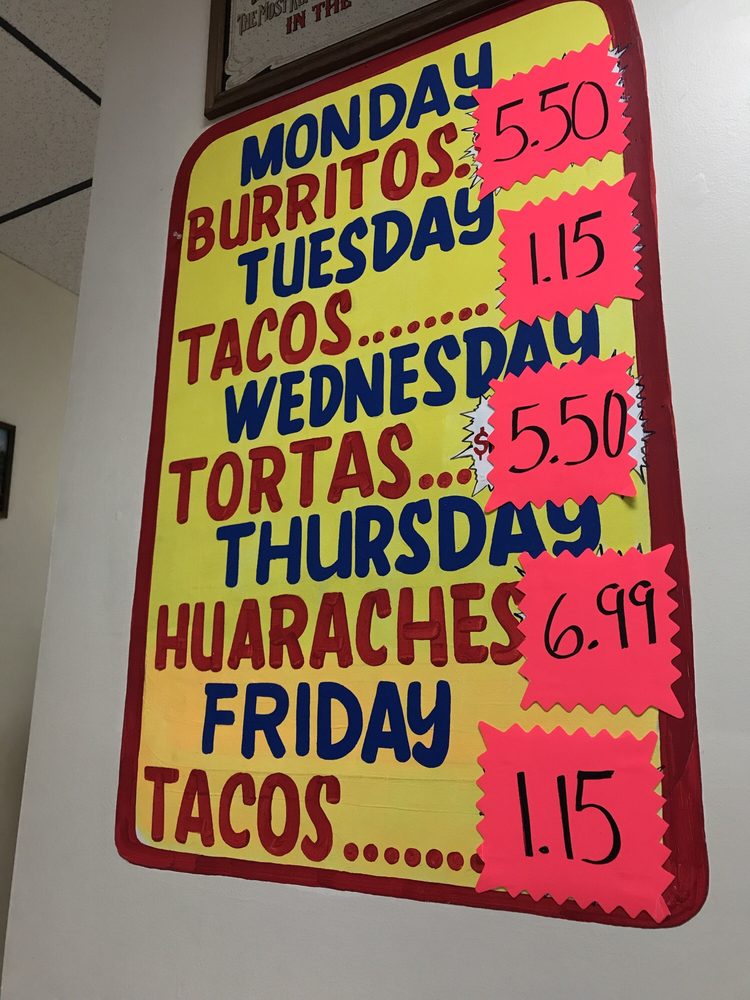 THE MOST
IN THE
MONDAY
BURRITOS. 5.50
TUESDAY
TACOS........ 1.15
WEDNESDAY
TORTAS... $ 5.50
THURSDAY
HUARACHES 6.99
FRIDAY
TACOS....... 1.15